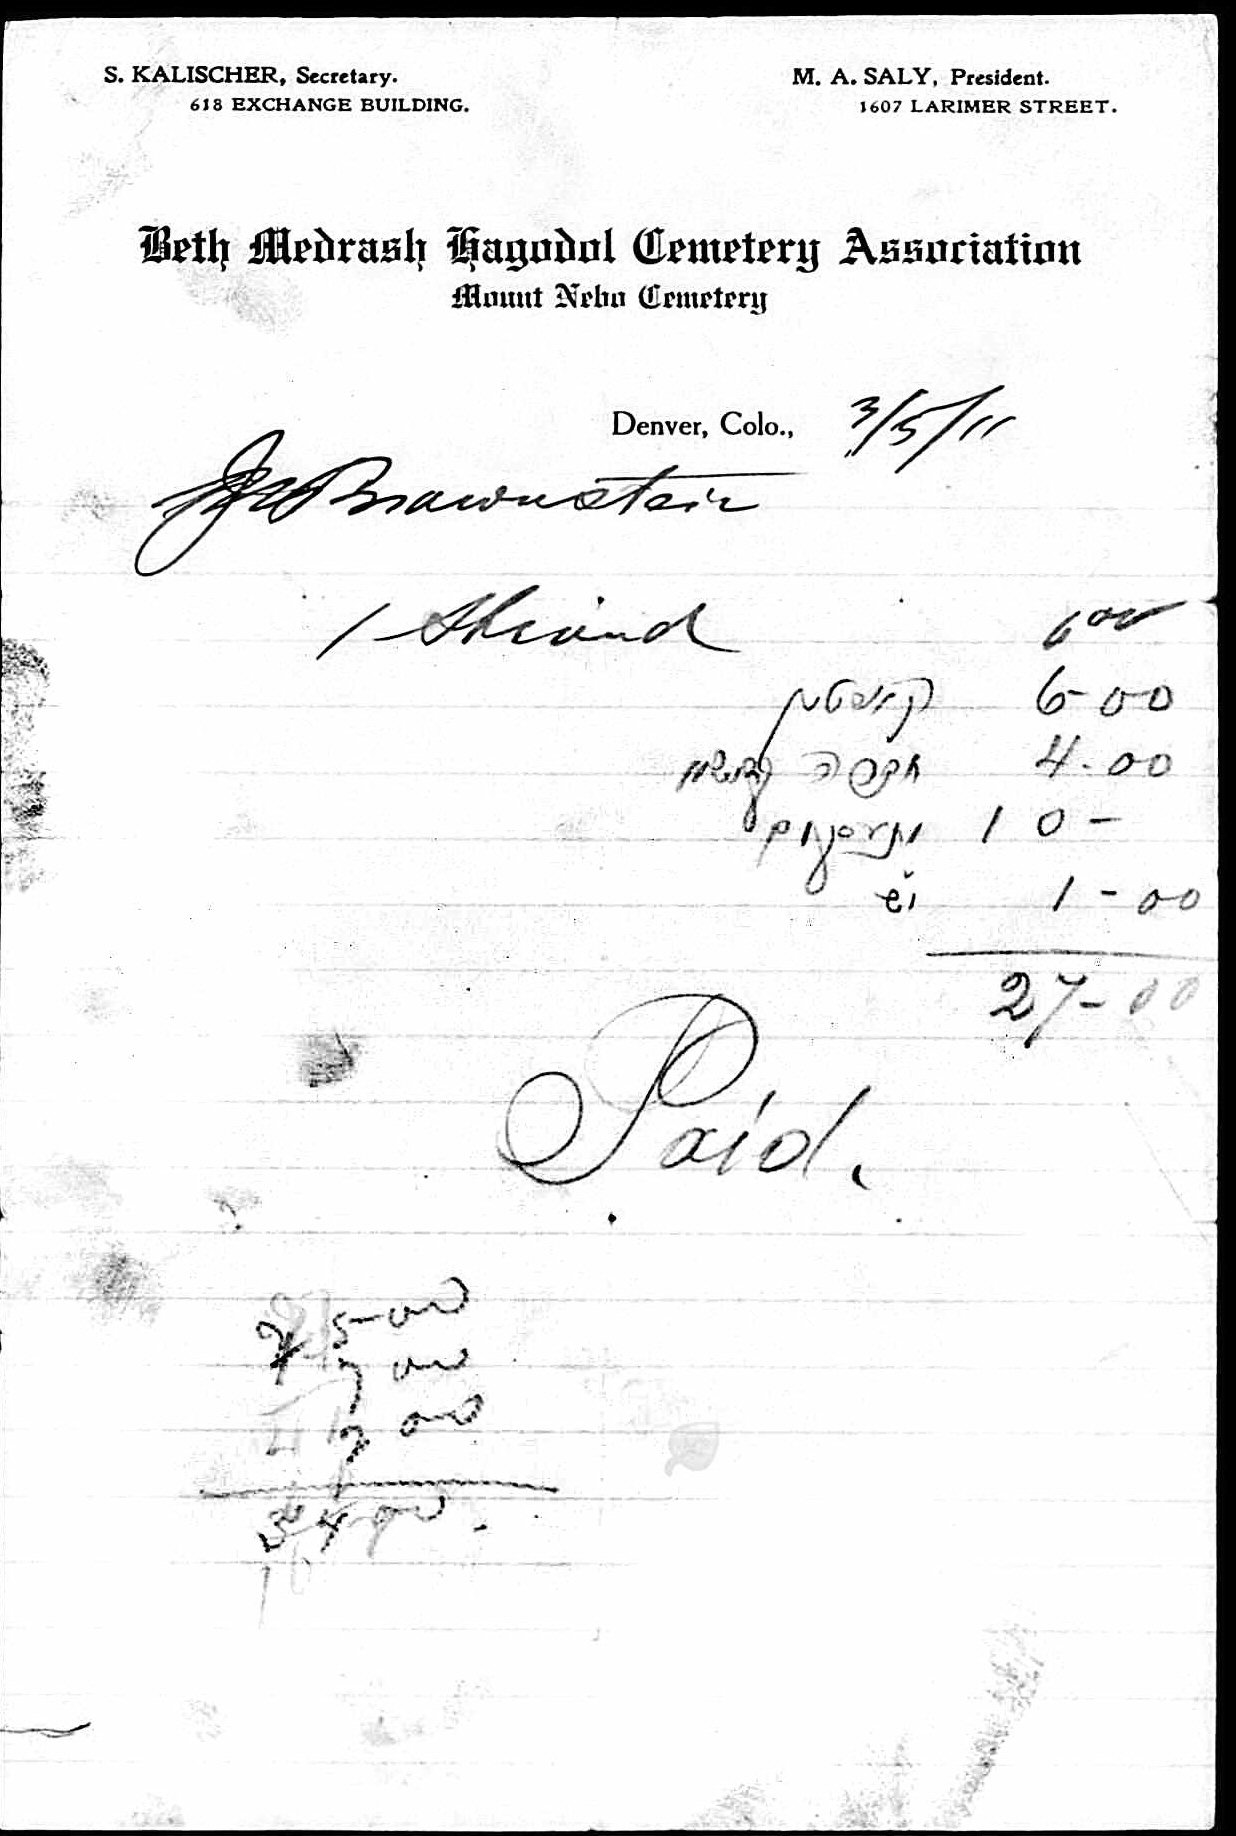 S. KALISCHER, Secretary.
618 EXCHANGE BUILDING.
M. A. SALY, President.
1607 LARIMER STREET.
Beth Medrash Hagodol Cemetery Association
Mount Nebo Cemetery
Denver, Colo., 3/5/11
Brownstein
1 Shroud 6 00
קאסטען 6-00
4.00
10-
1-00
27-00
Paid.
5-00
7 00
2 00
34 00